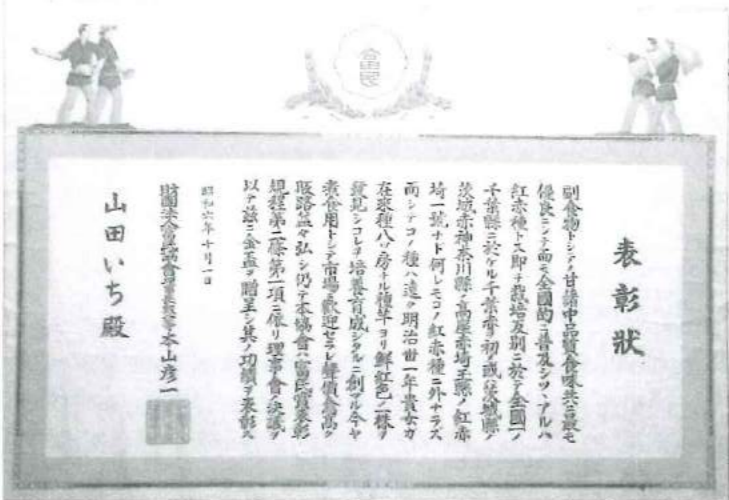 富民
表彰狀
副食物トシテノ甘藷中品質食味共ニ最モ
優良ニシテ而モ全國的ニ普及シツヽアルハ
紅赤種トス即チ栽培反別ニ於テ全國一ノ
千葉縣ニ於ケル千葉赤ヲ初メ或ハ茨城縣ノ
茨城赤神奈川縣ノ高座赤埼玉縣ノ紅赤
埼一號ナド何レモコノ紅赤種ニ外ナラズ
而シテコノ種ハ遠ク明治卅一年貴女ガ
在來種八ツ房ナル種芋ヨリ鮮紅色ノ一株ヲ
發見シコレヲ培養育成シタルニ創マル今ヤ
煮食用トシテ市場ニ歡迎セラレ聲價益高ク
販路益々弘シ仍テ本協會ハ富民賞表彰
規程第二條第一項ニ依リ理事會ノ決議ヲ
以テ茲ニ金盃ヲ贈呈シ其ノ功績ヲ表彰ス
昭和六年十月一日
財團法人富民協會理事長 本山彦一
山田いち殿